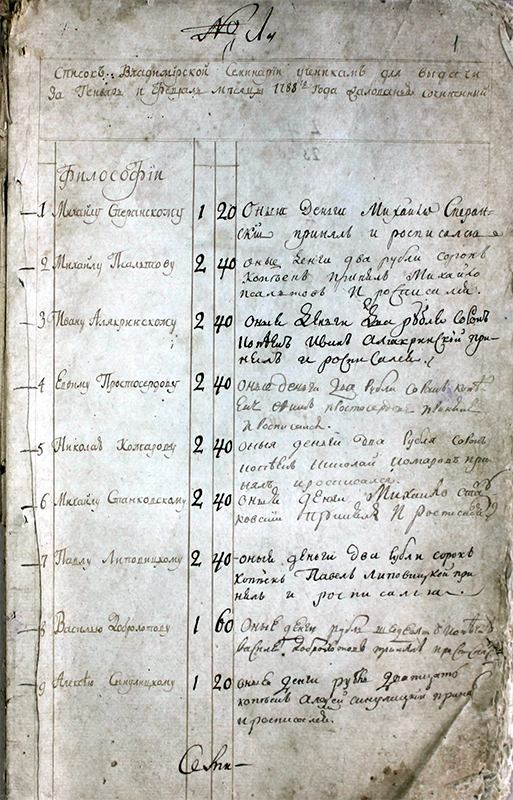 № 1
1
Списокъ Владимірской Семинаріи ученикамъ для выдачи
За Генварь и Февраль мѣсяцы 1788 года жалованья сочиненный
Философіи
1 Михайлу Сперанскому 1 20 Оныя деньги Михайло Сперан-
скій принялъ и росписался
2 Михайлу Псалтову 2 40 оные денги два рубли сорокъ
копѣекъ принялъ Михайло
Псалтовъ И росписался.
3 Ивану Алякринскому 2 40 оные деньги два рубли сорокъ
копѣекъ Иванъ Алякринской при-
нялъ и росписался
4 Ефиму Простосердову 2 40 оные деньги два рубли сорокъ
простосердовъ принялъ
И росписался
5 Николаю Комарову 2 40 оныя деньги два рубля сорокъ
копѣекъ Николай Комаровъ при-
нялъ и росписался.
6 Михайлу Станковскому 2 40 оныя денги Михайло Ста
ковскій принялъ И росписался
7 Павлу Липовицкому 2 40 оныя деньги два рубли сорокъ
копѣекъ Павелъ Липовицкой при-
нялъ и росписался.
8 Василью Доброхотову 1 60 Оные денги рубль
Доброхотовъ принялъ
9 Алексѣю Синулицкому 1 20 оные денги рубль дватцать
копѣекъ Алексѣй Синулицки
и росписался.